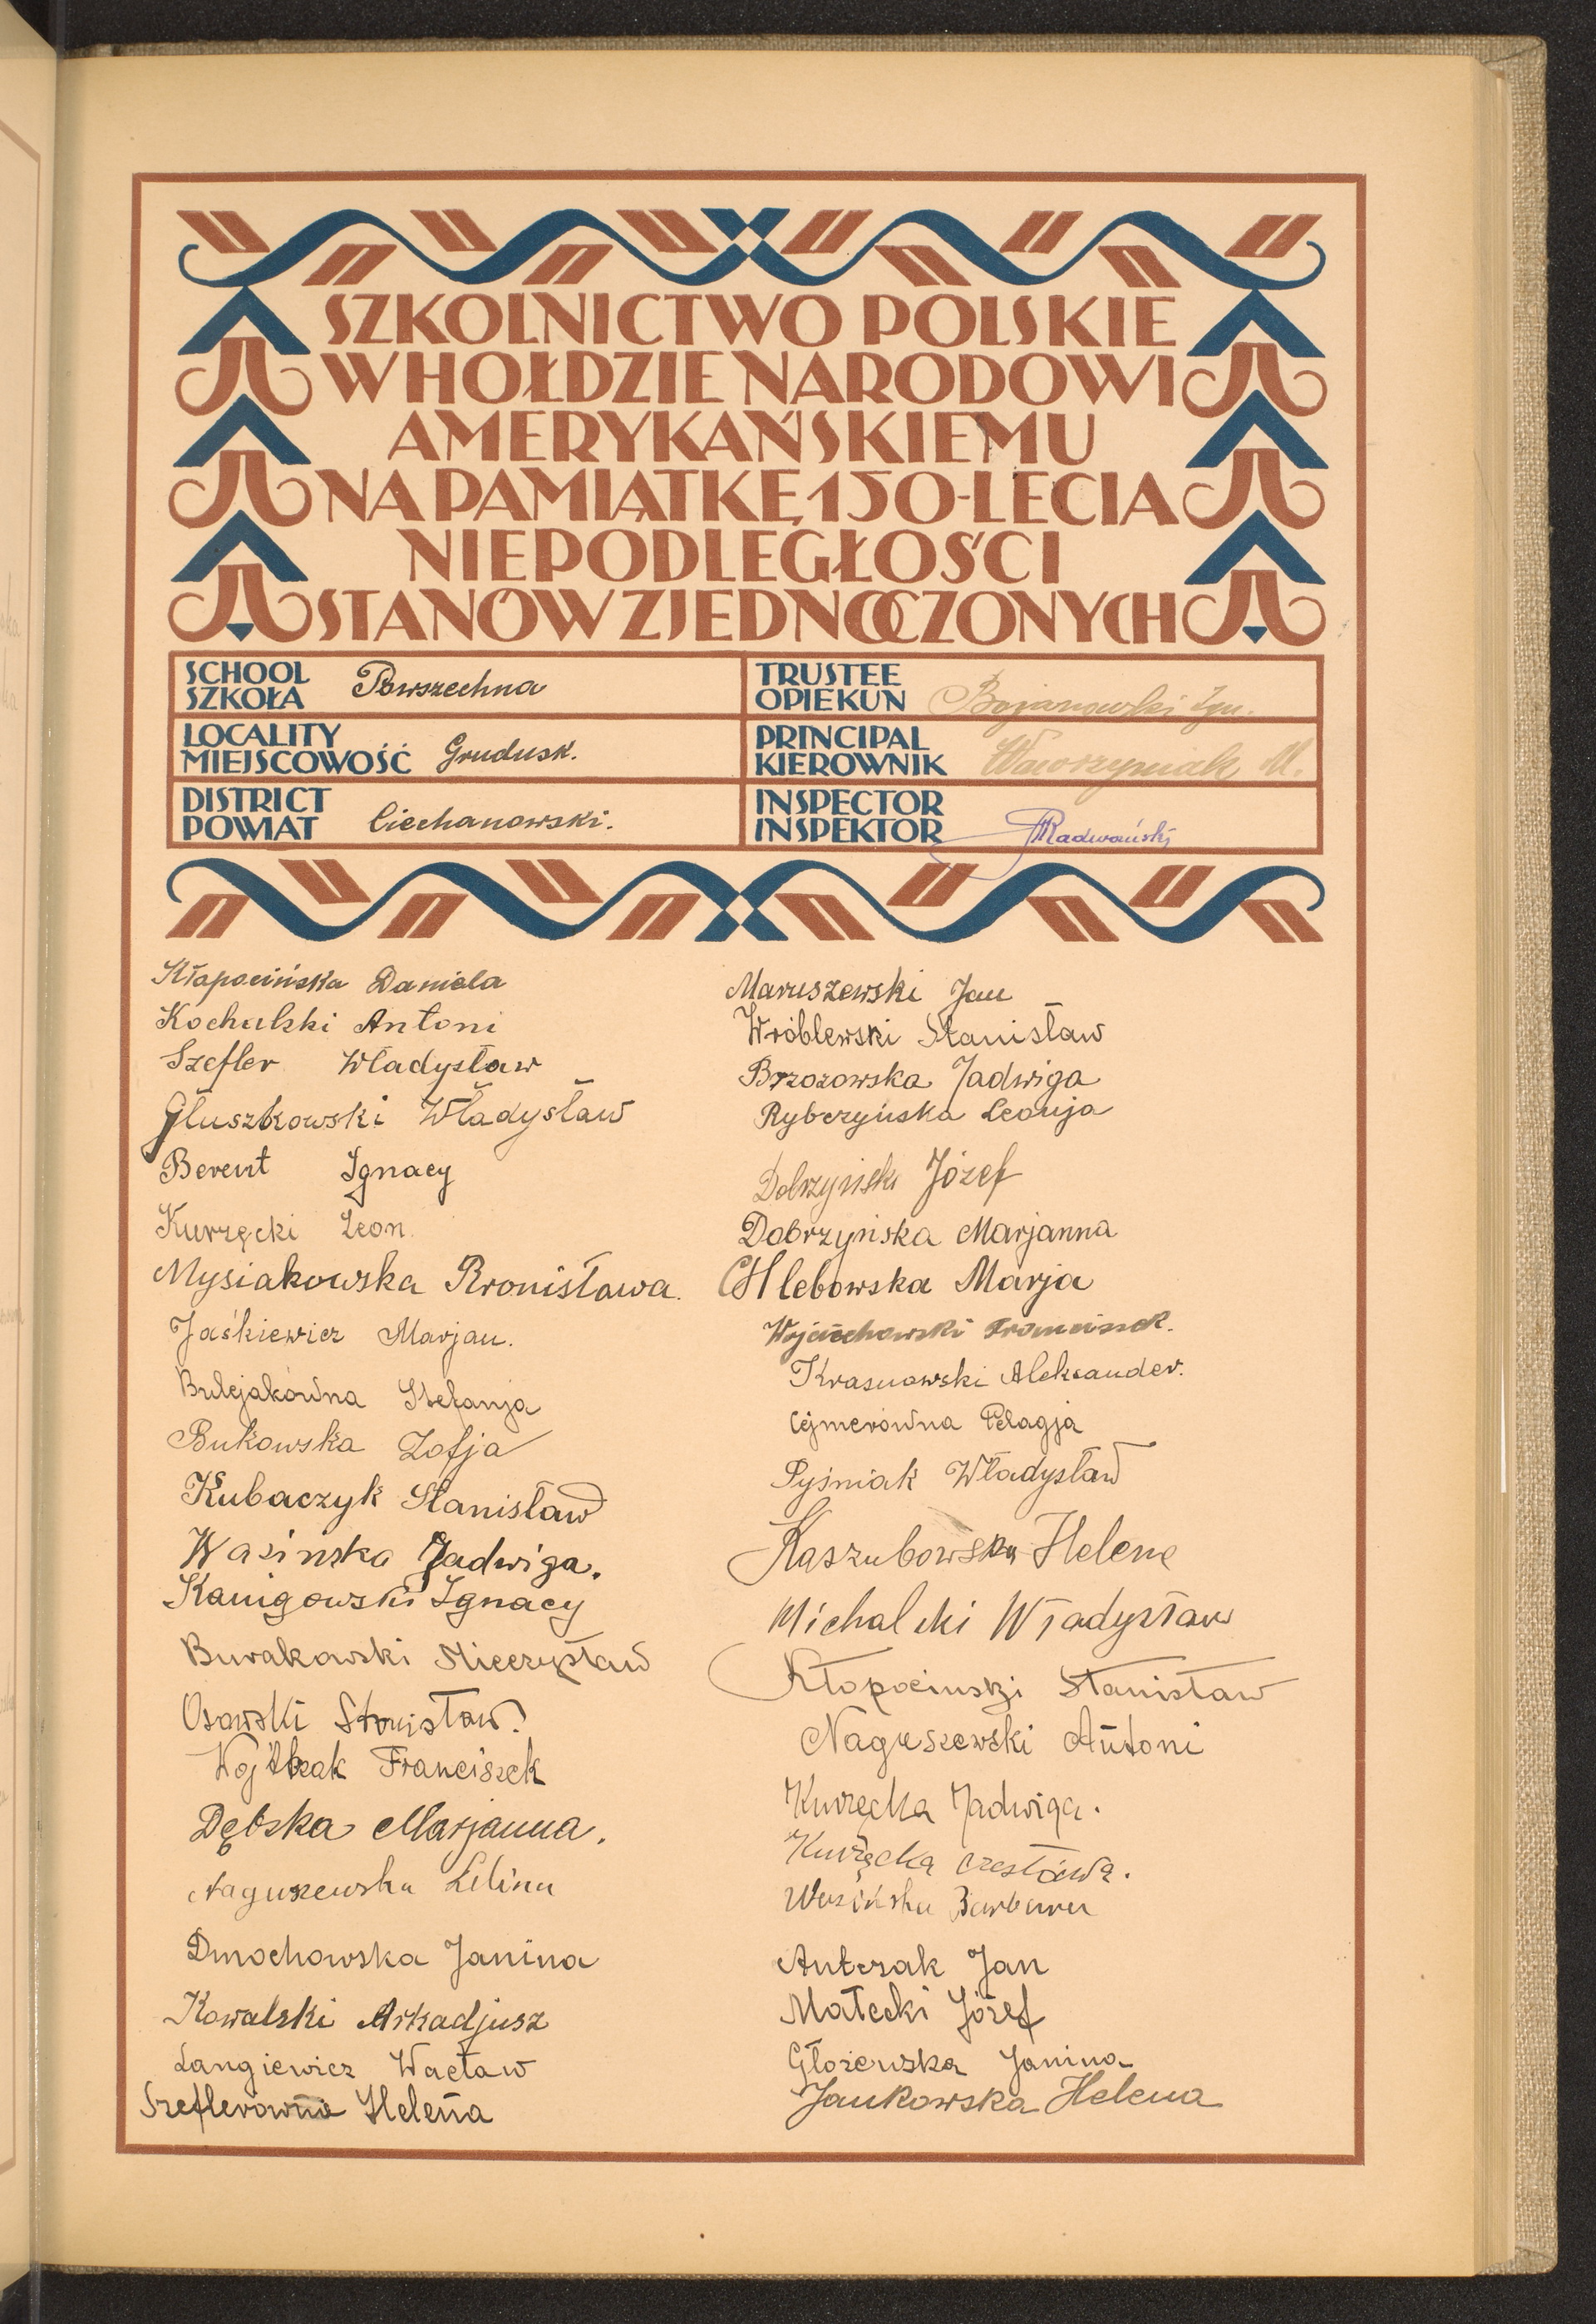 SZKOLNICTWO POLSKIE
W HOŁDZIE NARODOWI
AMERYKAŃSKIEMU
NA PAMIĄTKĘ 150-LECIA
NIEPODLEGŁOŚCI
STANÓW ZJEDNOCZONYCH
SCHOOL
SZKOŁA Powszechna
TRUSTEE
OPIEKUN Bojanowski Ign.
LOCALITY
MIEJSCOWOŚĆ Grudusk.
PRINCIPAL
KIEROWNIK Wawrzyniak M.
DISTRICT
POWIAT Ciechanowski.
INSPECTOR
INSPEKTOR Radwański
Kłapocińska Daniela
Kochalski Antoni
Szefler Władysław
Głuszkowski Władysław
Berent Ignacy
Kurzęcki Leon
Mysiakowska Bronisława.
Jaśkiewicz Marjan.
Bulejakówna Stefanja
Bukowska Zofja
Kubaczyk Stanisław
Wasińska Jadwiga.
Kanigowski Ignacy
Burakowski Mieczysław
Osowski Stanisław.
Wojtczak Franciszek
Dębska Marjanna.
Naguszewska Lilina
Dmochowska Janina
Kowalski Arkadjusz
Langiewicz Wacław
Szeflerówna Helena
Maruszewski Jan
Wróblewski Stanisław
Brzozowska Jadwiga
Rybczyńska Leonja
Dobrzyński Józef
Dobrzyńska Marjanna
CHlebowska Marja
Wojciechowski Franciszek.
Krasnowski Aleksander.
Cymerówna Pelagja
Pyśniak Władysław
Kaszubowska Helena
Michalski Władysław
Kłopocinski Stanisław
Naguszewski Antoni
Kurzęcka Jadwiga.
Kurzęcka Czesława.
Wasińska Barbara
Antczak Jan
Małecki Józef
Głożewska Janina
Jankowska Helena